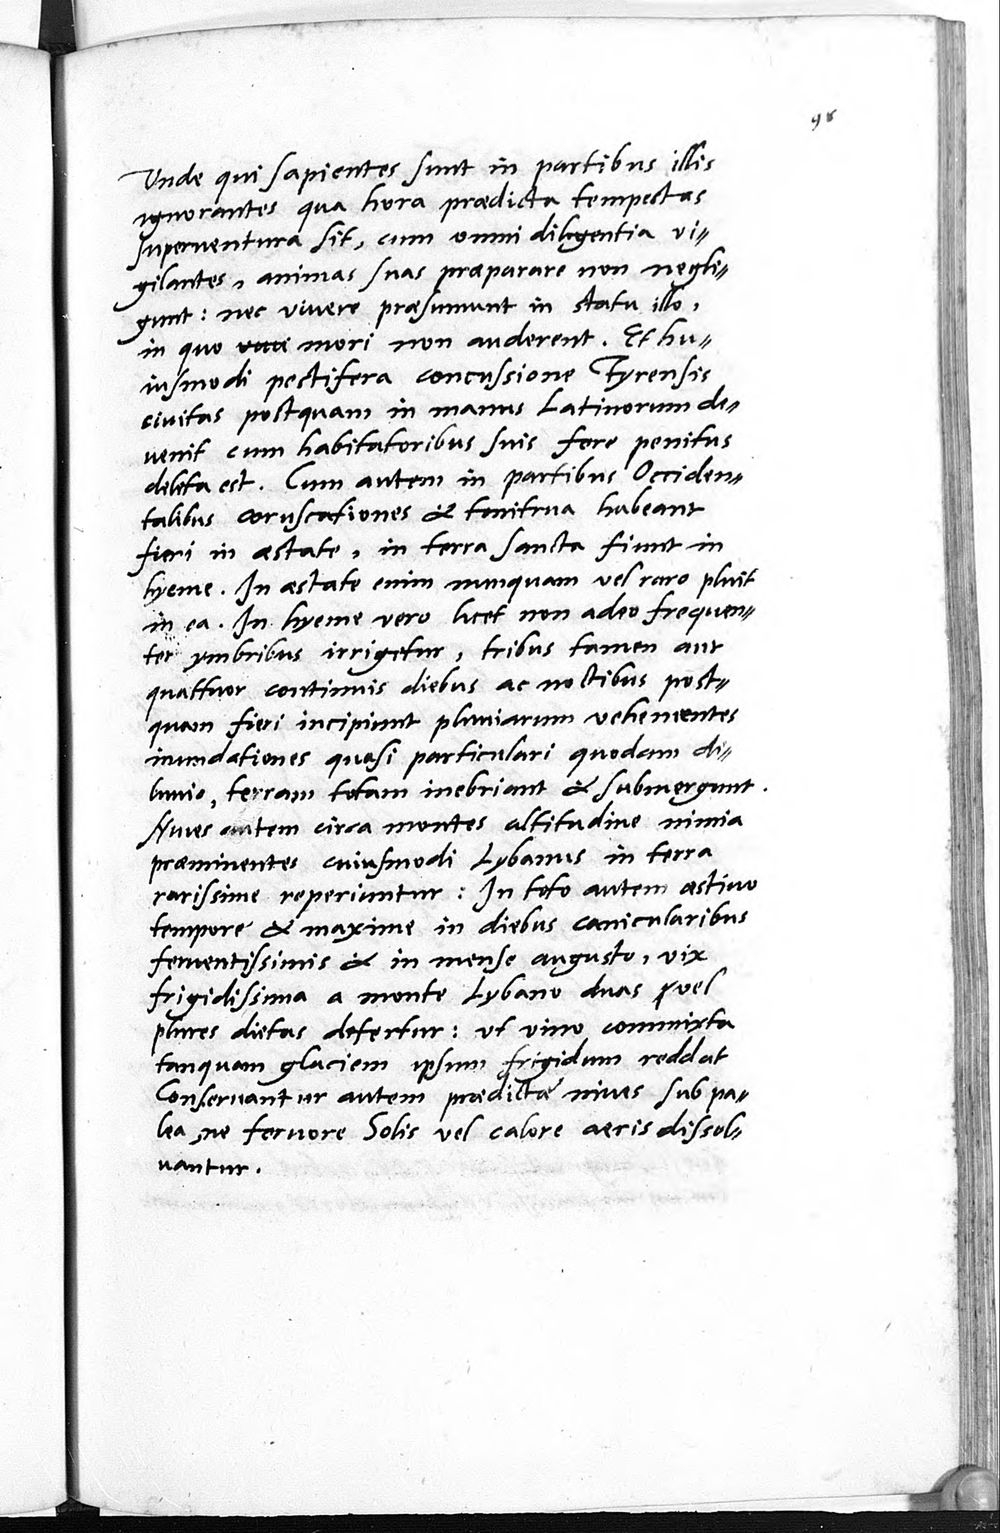 98
Unde qui sapientes sunt in partibus illis
ignorantes qua hora prædicta tempestas
superuentura sit, cum omni diligentia vi=
gilantes, animas suas præparare non negli=
gunt: nec viuere præsumunt in statu illo,
in quo mori non auderent. Et hu=
iusmodi pestifera concussione Tyrensis
ciuitas postquam in manus Latinorum de=
uenit cum habitatoribus suis fere penitus
deleta est. Cum autem in partibus Occiden=
talibus coruscationes & tonitrua habeant
fieri in æstate, in terra sancta fiunt in
hyeme. In æstate enim nunquam vel raro pluit
in ea. In hyeme vero licet non adeo frequen=
ter ymbribus irrigetur, tribus tamen aut
quattuor continuis diebus ac noctibus post=
quam fieri incipiunt pluuiarum vehementes
inundationes quasi particulari quodam di=
luuio, terram totam inebriant & submergunt.
Niues autem circa montes altitudine nimia
præminentes cuiusmodi Lybanus in terra
rarissime reperiuntur: In toto autem æstiuo
tempore & maxime in diebus canicularibus
feruentissimis & in mense augusto, vix
frigidissima a monte Lybano duas vel
plures dietas defertur: vt vino commixta
tanquam glaciem ipsum frigidum reddat
Conseruantur autem prædictæ niues sub pa=
lea, ne feruore Solis vel calore aeris dissol=
uantur.